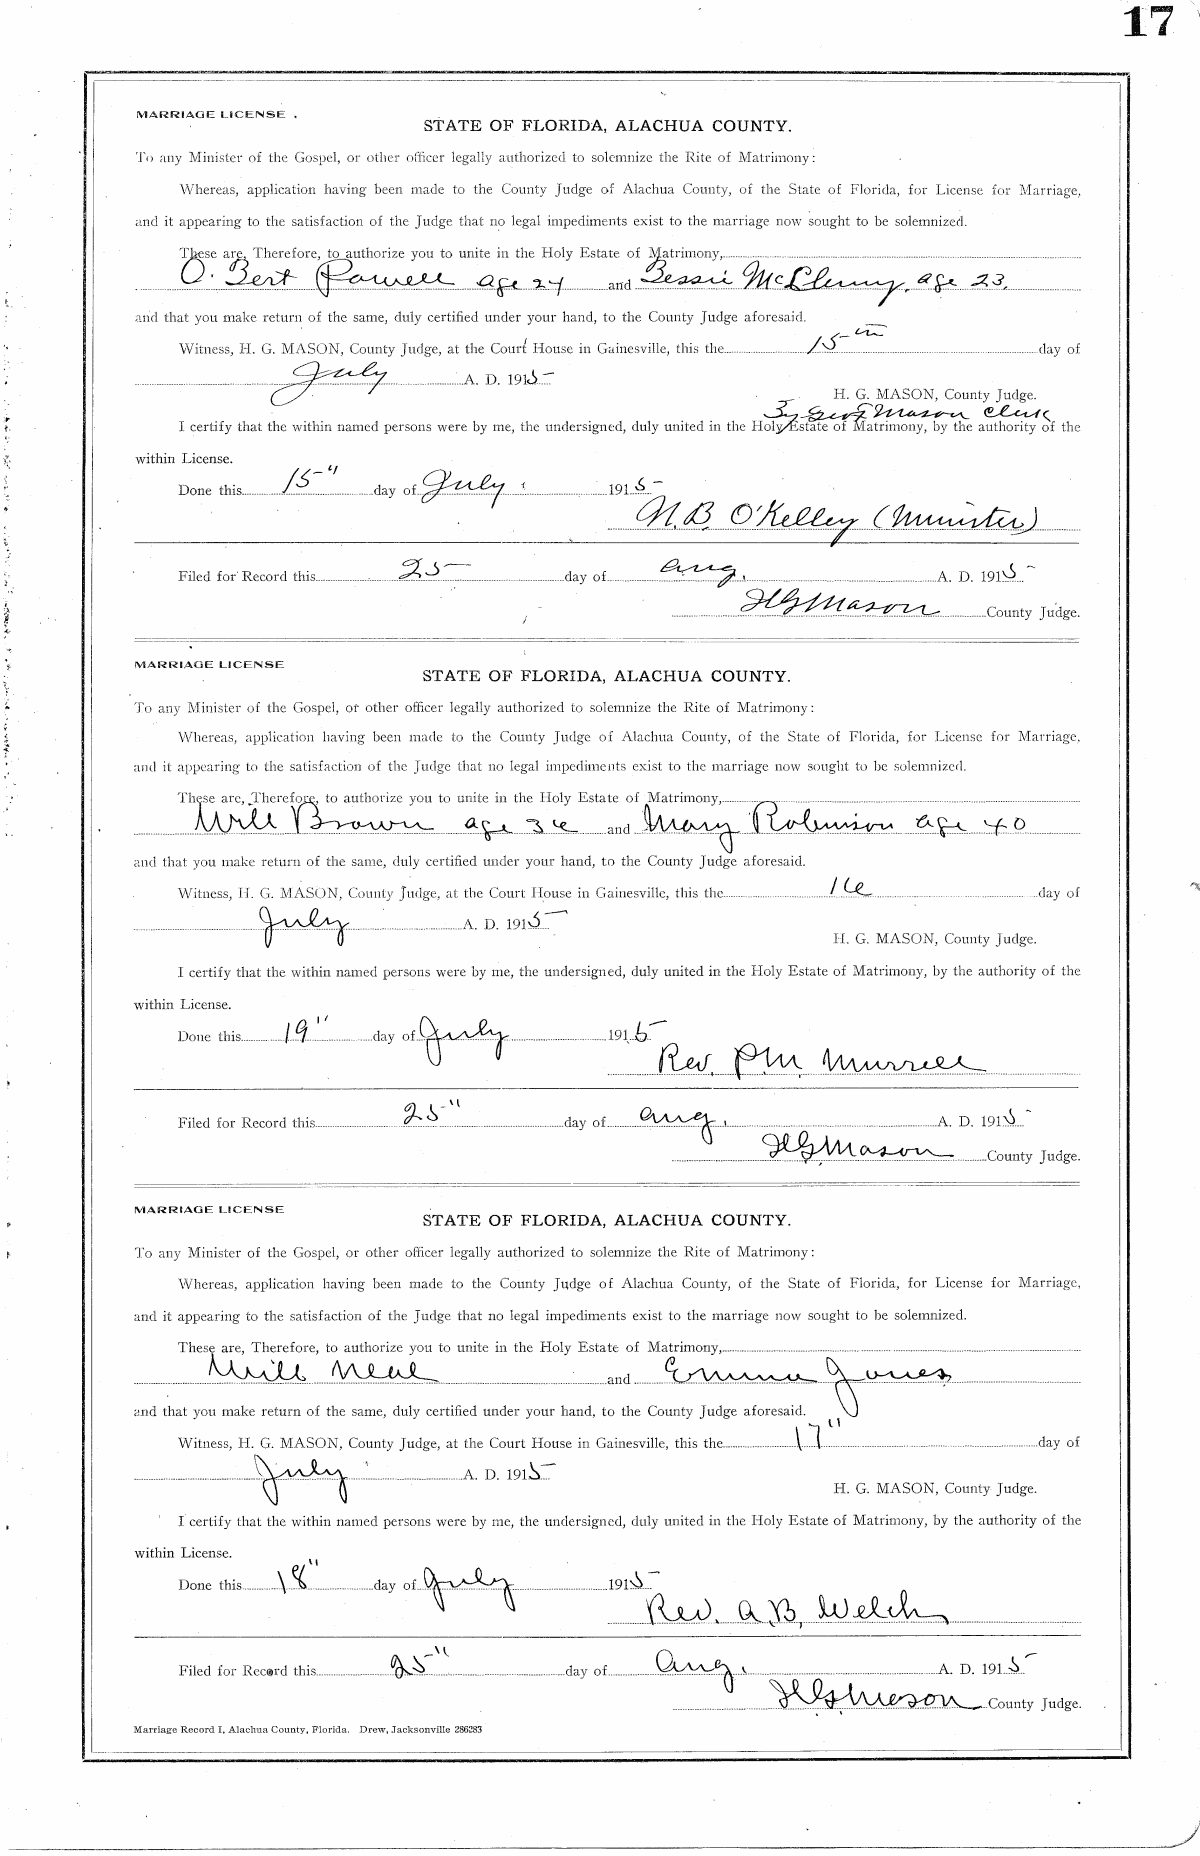 17
MARRIAGE LICENSE
STATE OF FLORIDA, ALACHUA COUNTY.
To any Minister of the Gospel, or other officer legally authorized to solemnize the Rite of Matrimony:
Whereas, application having been made to the County Judge of Alachua County, of the State of Florida, for License for Marriage,
and it appearing to the satisfaction of the Judge that no legal impediments exist to the marriage now sought to be solemnized.
These are, Therefore, to authorize you to unite in the Holy Estate of Matrimony,
O. Bert Powell age 24 and Bessie McClenny, age 23,
and that you make return of the same, duly certified under your hand, to the County Judge aforesaid.
Witness, H. G. MASON, County Judge, at the Court House in Gainesville, this the 15th day of
July A. D. 1915
H. G. MASON, County Judge.
By Geo F Mason Clerk
I certify that the within named persons were by me, the undersigned, duly united in the Holy Estate of Matrimony, by the authority of the
within License.
Done this 15" day of July 1915
N. B. O'Kelley (Minister)
Filed for Record this 25 day of Aug. A. D. 1915
H G Mason County Judge.
MARRIAGE LICENSE
STATE OF FLORIDA, ALACHUA COUNTY.
To any Minister of the Gospel, or other officer legally authorized to solemnize the Rite of Matrimony:
Whereas, application having been made to the County Judge of Alachua County, of the State of Florida, for License for Marriage,
and it appearing to the satisfaction of the Judge that no legal impediments exist to the marriage now sought to be solemnized.
These are, Therefore, to authorize you to unite in the Holy Estate of Matrimony,
Will Brown age 36 and Mary Robinson age 40
and that you make return of the same, duly certified under your hand, to the County Judge aforesaid.
Witness, H. G. MASON, County Judge, at the Court House in Gainesville, this the 16 day of
July A. D. 1915
H. G. MASON, County Judge.
I certify that the within named persons were by me, the undersigned, duly united in the Holy Estate of Matrimony, by the authority of the
within License.
Done this 19" day of July 1915
Rev. P.M. Murrell
Filed for Record this 25" day of Aug. A. D. 1915
H G Mason County Judge.
MARRIAGE LICENSE
STATE OF FLORIDA, ALACHUA COUNTY.
To any Minister of the Gospel, or other officer legally authorized to solemnize the Rite of Matrimony:
Whereas, application having been made to the County Judge of Alachua County, of the State of Florida, for License for Marriage,
and it appearing to the satisfaction of the Judge that no legal impediments exist to the marriage now sought to be solemnized.
These are, Therefore, to authorize you to unite in the Holy Estate of Matrimony,
Will Neal and Emma Jones
and that you make return of the same, duly certified under your hand, to the County Judge aforesaid.
Witness, H. G. MASON, County Judge, at the Court House in Gainesville, this the 17" day of
July A. D. 1915
H. G. MASON, County Judge.
I certify that the within named persons were by me, the undersigned, duly united in the Holy Estate of Matrimony, by the authority of the
within License.
Done this 18" day of July 1915
Rev. A.B. Welch
Filed for Record this 25" day of Aug. A. D. 1915
H G Mason County Judge.
Marriage Record I, Alachua County, Florida. Drew, Jacksonville 286283